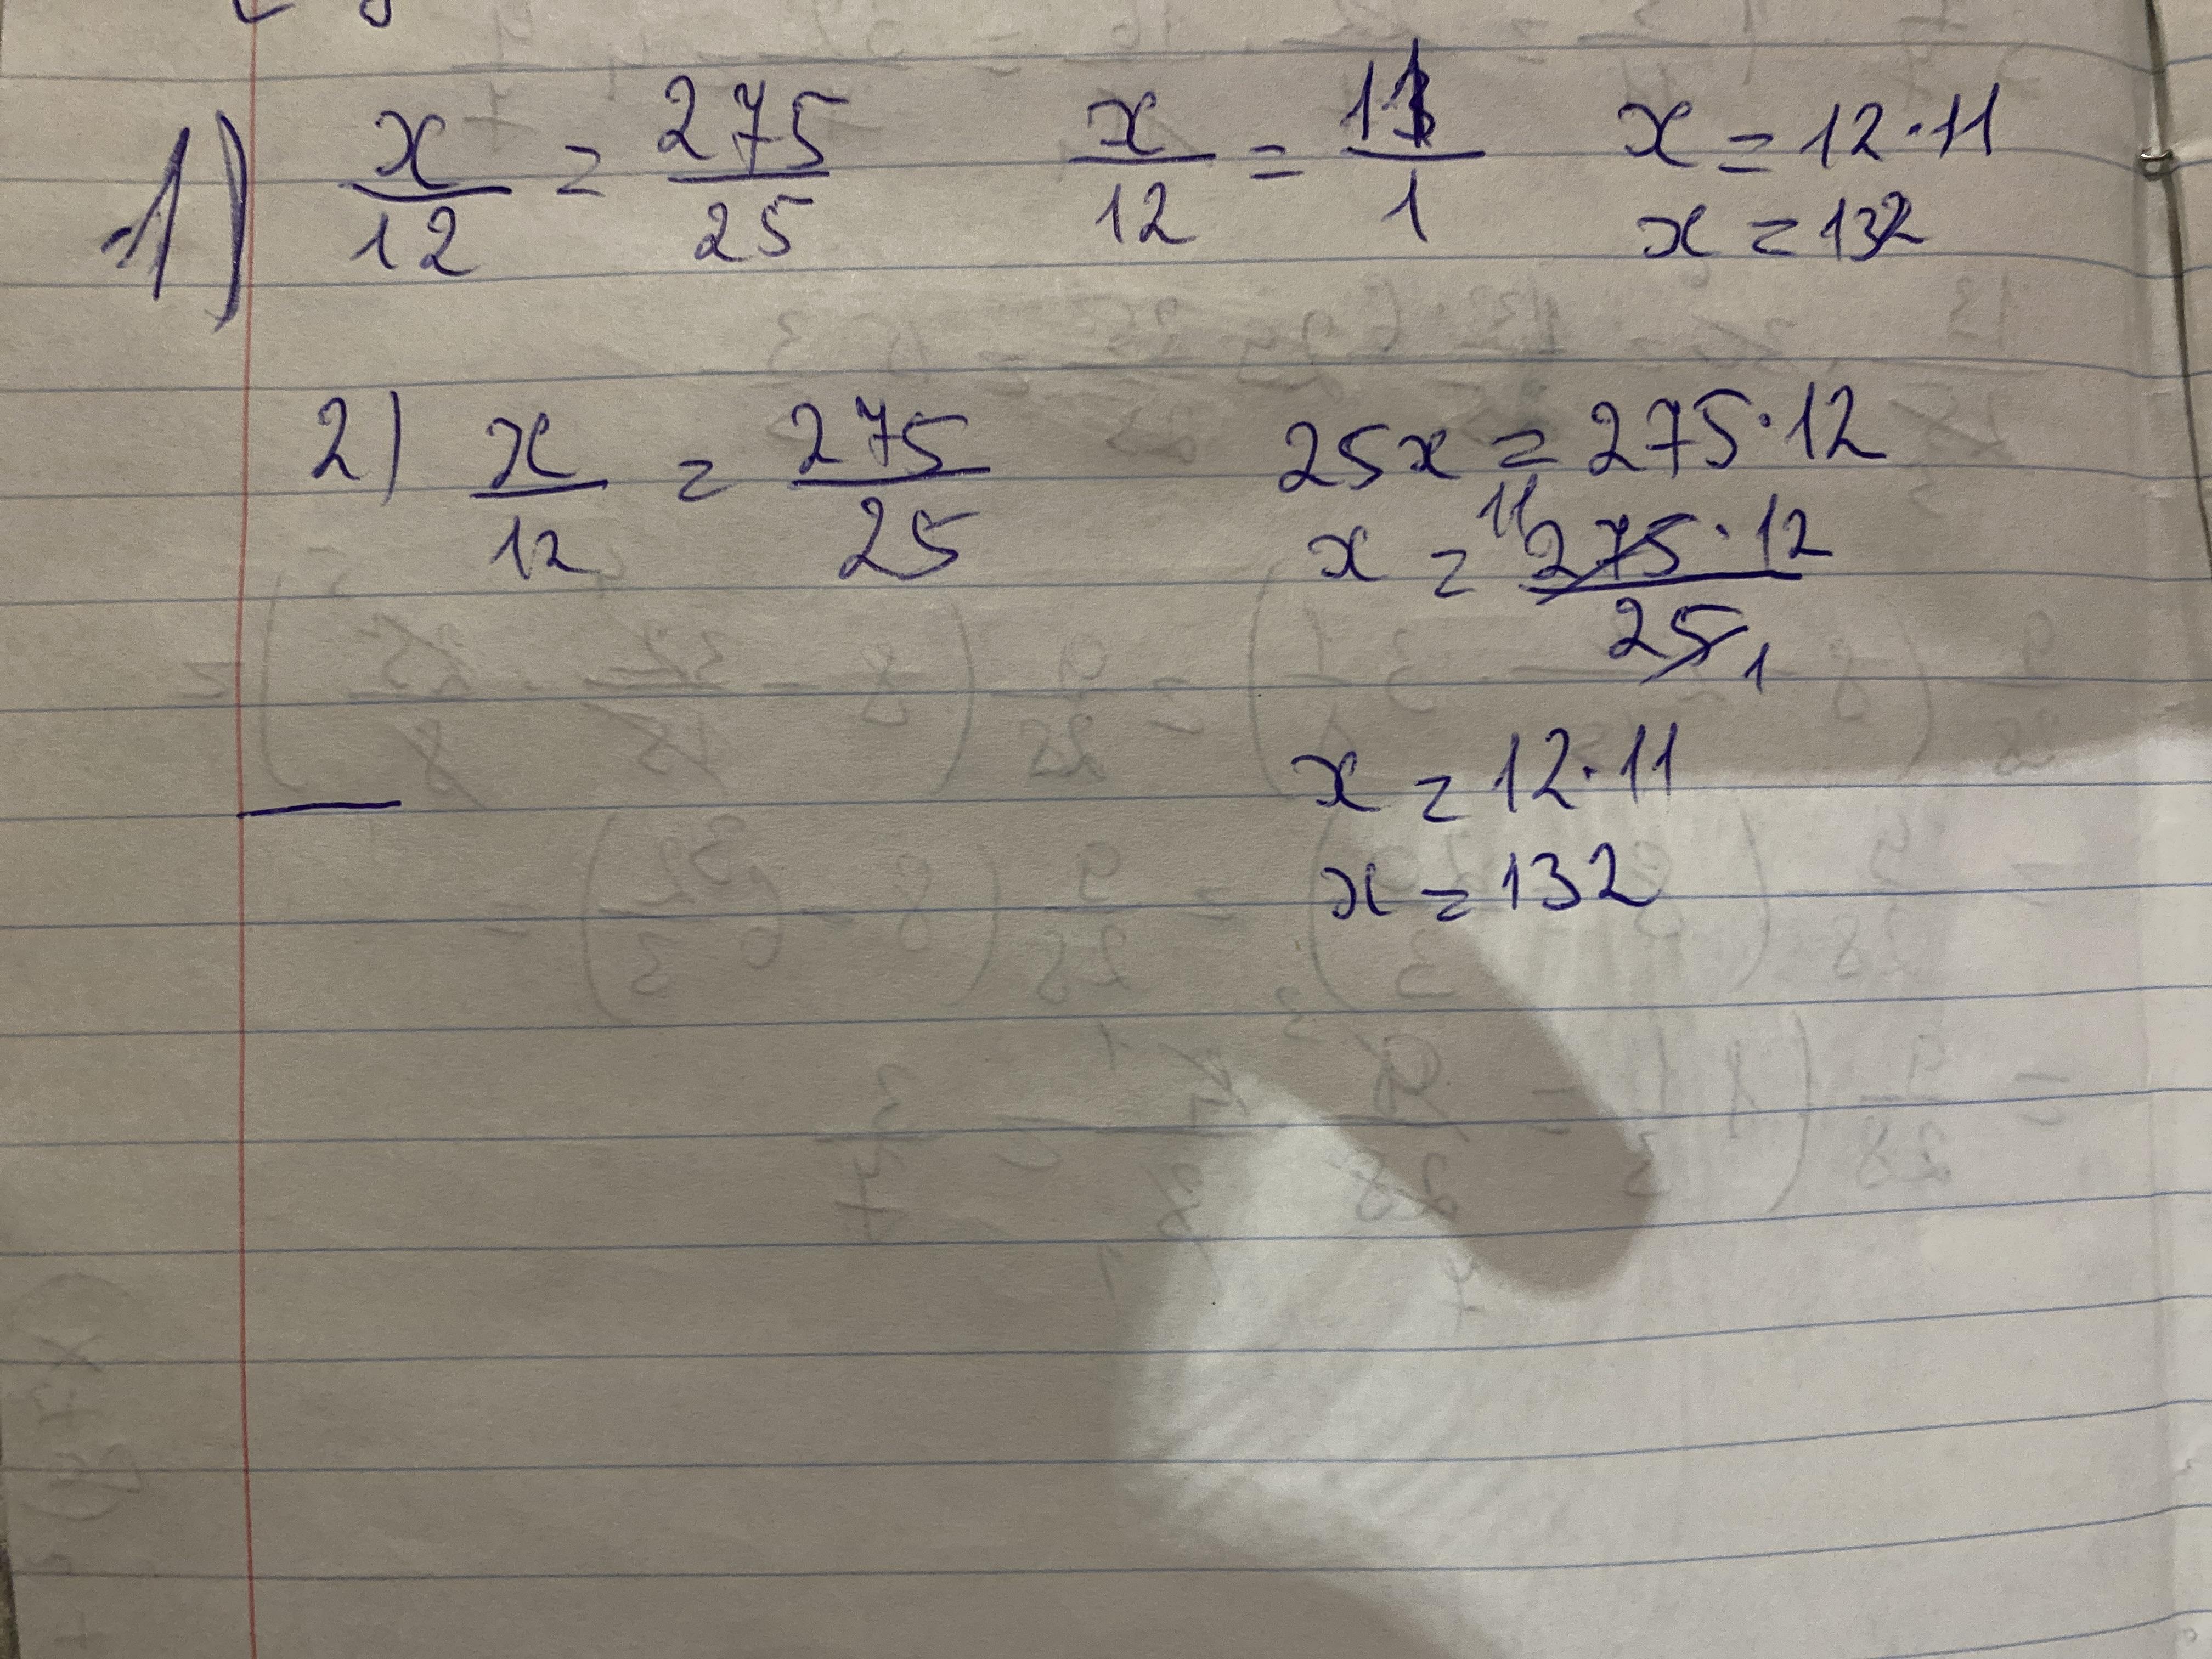 1) x/12 = 275/25   x/12 = 11/1   x = 12·11
x = 132
2) x/12 = 275/25   25x = 275·12
x = 11 275·12/25 1
x = 12·11
x = 132